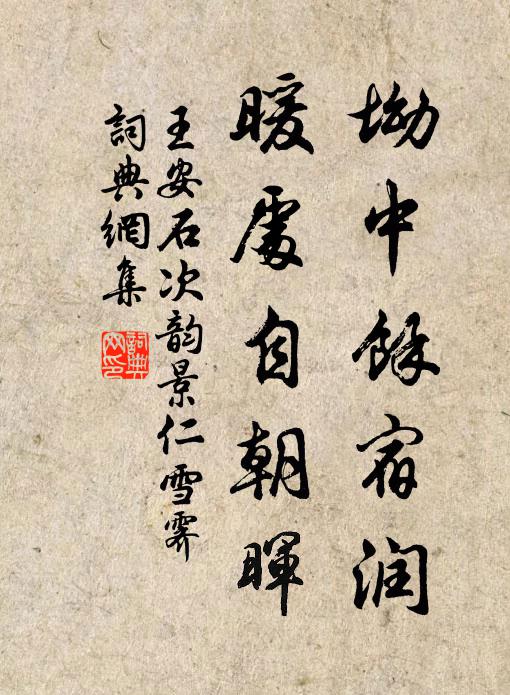 坳中餘宿润
暖處自朝暉
王安石次韵景仁雪霽
詞典網集
詞典网印